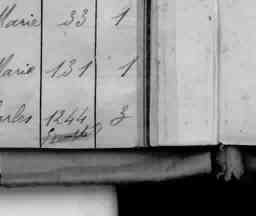 Marie 33 1
Marie 131 1
arles 1244 3